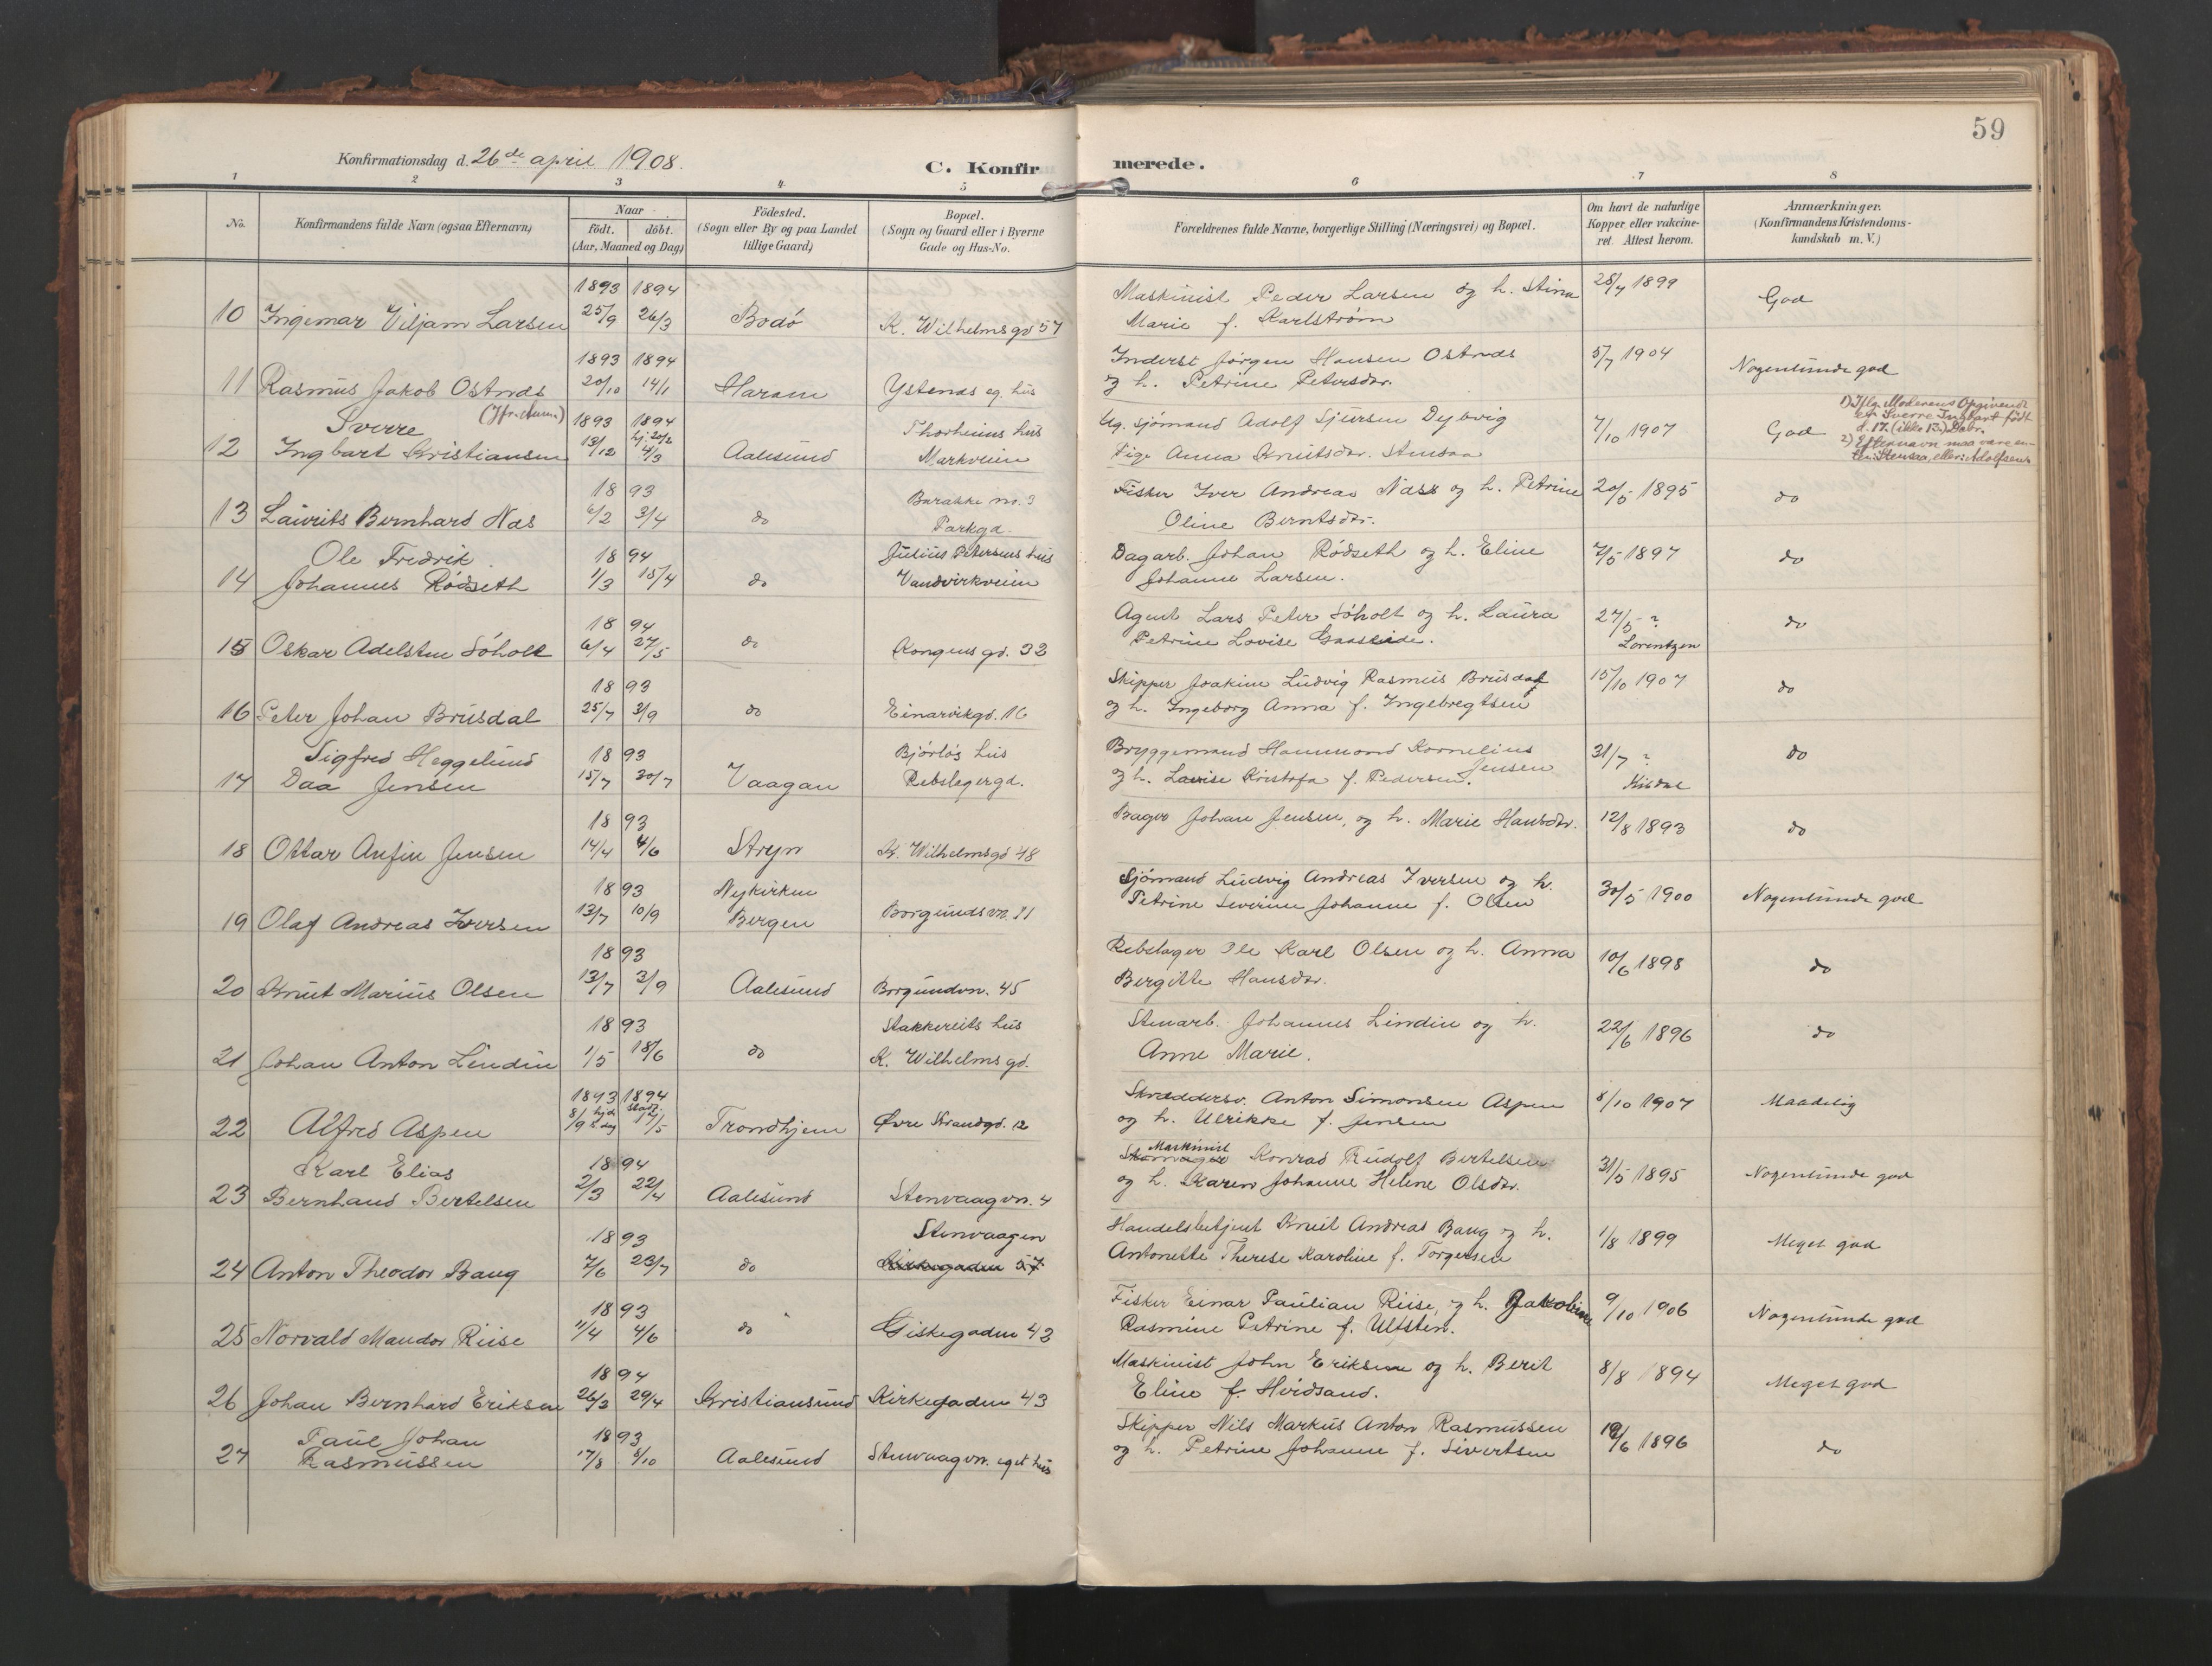 59
Konfirmationsdag d. 26de april 1908.
C. Konfirmerede.
1 2 3 4 5 6 7 8
No.
Konfirmandens fulde Navn (ogsaa Efternavn)
Naar
födt. döbt.
(Aar, Maaned og Dag)
Födested.
(Sogn eller By og paa Landet
tillige Gaard)
Bopæl.
(Sogn og Gaard eller i Byerne
Gade og Hus-No.
Forældrenes fulde Navne, borgerlige Stilling (Næringsvei) og Bopæl.
Om havt de naturlige
Kopper eller vakcine-
ret. Attest herom.
Anmærkninger.
(Konfirmandens Kristendoms-
kundskab m. V.)
1893 1894
10 Ingemar Viljam Larsen 25/9 26/3 Bodö K. Wilhelmsgd 57
Maskinist Peder Larsen og h. Stina
Marie f. Karlstrøm
28/7 1899 God
1893 1894
11 Rasmus Jakob Ostnes 20/10 14/1 Haram Ystenes eg. hus
Inderst Jørgen Hansen Ostnes
og h. Petrine Petersdr.
5/7 1904 Nogenlunde god
Sverre 1893 1894
12 Ingbart Kristiansen 13/12 hj. 20/2 4/3 Aalesund
Thorheims hus
Markveien
Ug. sjömand Adolf Sjursen Dybvig
Pige Anna Knutsdr. Stensaa
7/10 1907 God
1) Iflg. Moderens Opgivende
er Sverre Ingbart født
d. 17. (ikke 13.) Debr.
2) Efternavn maa være en-
ten: Stensaa, eller: Adolfsen
18 93
13 Laurits Bernhard Næs 6/2 3/4 do
Barakke no. 3
Parkgd.
Fisker Iver Andreas Næss og h. Petrine
Oline Berntsdr.
20/5 1895 do
Ole Fredrik 18 94
14 Johannes Rödseth 1/3 15/4 do
Julius Petersens hus
Vandvirkveien
Dagarb. Johan Rödseth og h. Eline
Johanne Larsen.
7/5 1897 do
18 94
15 Oskar Adelsten Söholt 6/4 27/5 do Kongensgd. 32
Agent Lars Peter Söholt og h. Laura
Petrine Lovise Gaaseide.
27/5 ?
Lorentzen do
18 93
16 Peter Johan Brusdal 25/7 3/9 do Einarvikgd. 16
Skipper Joakim Ludvig Rasmus Brusdal
og h. Ingeborg Anna f. Ingebregtsen
15/10 1907 do
Sigfred Heggelund 18 93
17 Daa Jensen 15/7 30/7 Vaagan
Bjørløs hus
Rebslagergd.
Bryggemand Hammond Kornelius
Jensen
og h. Lovise Kristofa f. Pedersen.
31/7 ? do
18 93
18 Ottar Anfin Jensen 14/4 4/6 Stryn K. Wilhelmsgd 48
Bager Johan Jensen, og h. Marie Hansdr.
12/8 1893 do
18 93
19 Olaf Andreas Iversen 13/7 10/9
Nykirken
Bergen
Borgundsvn. 31
Sjömand Ludvig Andreas Iversen og h.
Petrine Severine Johanne f. Olsen
30/5 1900 Nogenlunde god
18 93
20 Knut Marius Olsen 13/7 3/9 Aalesund Borgundvn. 45
Rebslager Ole Karl Olsen og h. Anna
Bergitte Hansdr.
10/6 1898 do
18 93
21 Johan Anton Lindin 1/5 18/6 do
Stakkereits hus
K. Wilhelmsgd.
Stenarb. Johannes Lindin og h.
Anne Marie.
22/6 1896 do
1893 1894
22 Alfred Aspen 8/9 4/5 Trondhjem Øvre Strandgd. 12
Skræddersv. Anton Simonsen Aspen
og h. Ulrikke f. Jensen
8/10 1907 Maadelig
Karl Elias 18 94
23 Bernhard Bertelsen 2/3 22/4 Aalesund Stenvaagvn. 4
Maskinist Konrad Rudolf Bertelsen
og h. Karen Johanne Helene Olsdr.
31/5 1895 Nogenlunde god
18 93
24 Anton Theodor Baug 7/6 23/7 do
Stenvaagen
Kirkegaden 57
Handelsbetjent Knut Andreas Baug og h.
Antonette Therese Karoline f. Torgersen
1/8 1899 Meget god
18 93
25 Norvald Mandor Riise 11/4 4/6 do Giskegaden 42
Fisker Einar Paulian Riise, og h. Jakobine
Rasmine Petrine f. Ulfsten.
9/10 1906 Nogenlunde god
18 94
26 Johan Bernhard Eriksen 26/3 29/4 Kristiansund Kirkegaden 43
Maskinist John Eriksen og h. Berit
Eline f. Hvidsand.
8/8 1894 Meget god
Paul Johan 1893
27 Rasmussen 17/8 8/10 Aalesund Stenvaagvn. eget hus
Skipper Nils Markus Anton Rasmussen
og h. Petrine Johanne f. Sivertsen
19/6 1896 do